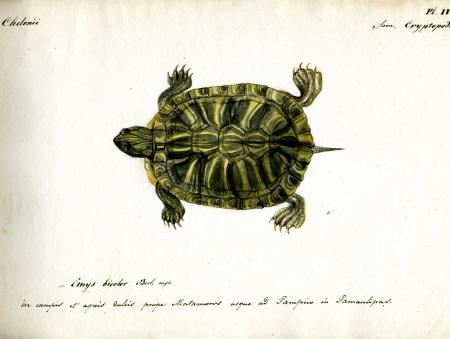 Chelonii
Pl. IV
Fam. Cryptopod
Emys bicolor Berl.
in campis et aquis dulcis prope Matamoros usque ad Tampico in Tamaulipas.